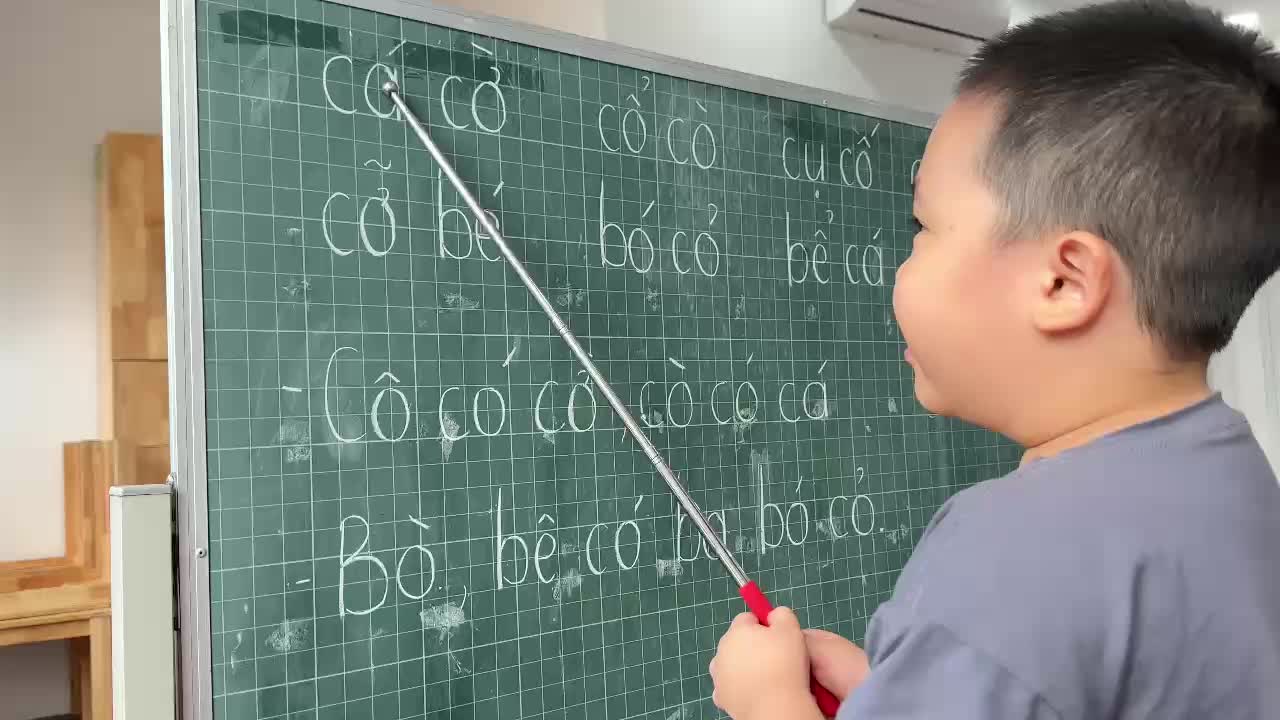 cá cờ cổ cò cụ cố
cỡ bé bó cỏ bể cá
- Cô có cờ cò có cá
- Bò, bê có bó cỏ.